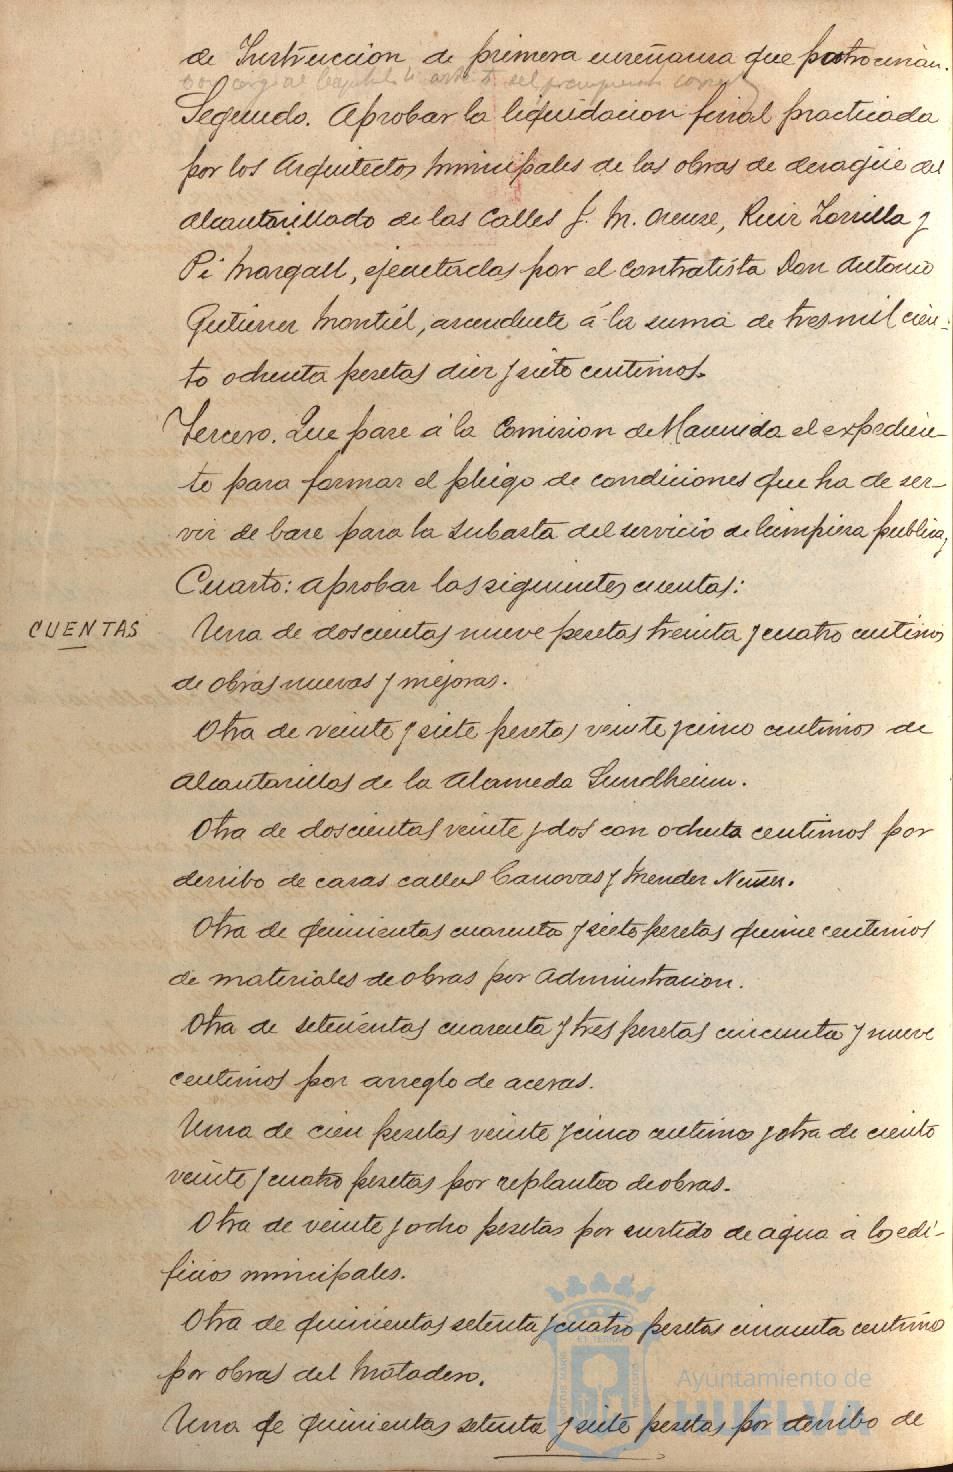 de Instrucción de primera enseñanza que patrocinan.
con cargo al Capitulo 4 artº 5 del presupuesto
Segundo. Aprobar la liquidacion final practicada
por los Arquitectos Municipales de las obras de desagüe del
alcantarillado de las Calles J. M. Orense, Ruiz Zorrilla y
Pi Margall, ejecutadas por el contratista Don Antonio
Gutierrez Montiel, ascendente á la suma de tres mil cien-
to ochenta pesetas diez y siete centimos.
Tercero. Que pase á la Comision de Hacienda el expedien-
te para formar el pliego de condiciones que ha de ser-
vir de base para la subasta del servicio de limpieza publica,
Cuarto: aprobar las siguientes cuentas:
CUENTAS
Una de doscientas nueve pesetas treinta y cuatro centimos
de obras nuevas y mejoras.
Otra de veinte y siete pesetas veinte y cinco centimos de
alcantarillas de la Alameda Sundheim.
Otra de doscientas veinte y dos con ochenta centimos por
derribo de casas calles Canovas y Mendez Nuñez.
Otra de quinientas cuarenta y siete pesetas quince centimos
de materiales de obras por Administracion.
Otra de setecientas cuarenta y tres pesetas cincuenta y nueve
centimos por arreglo de aceras.
Una de cien pesetas veinte y cinco centimos y otra de ciento
veinte y cuatro pesetas por replanteo de obras.
Otra de veinte y ocho pesetas por surtido de agua á los edi-
ficios municipales.
Otra de quinientas setenta y cuatro pesetas cincuenta centimos
por obras del Matadero.
Una de quinientas setenta y siete pesetas por derribo de
Ayuntamiento de
HUELVA